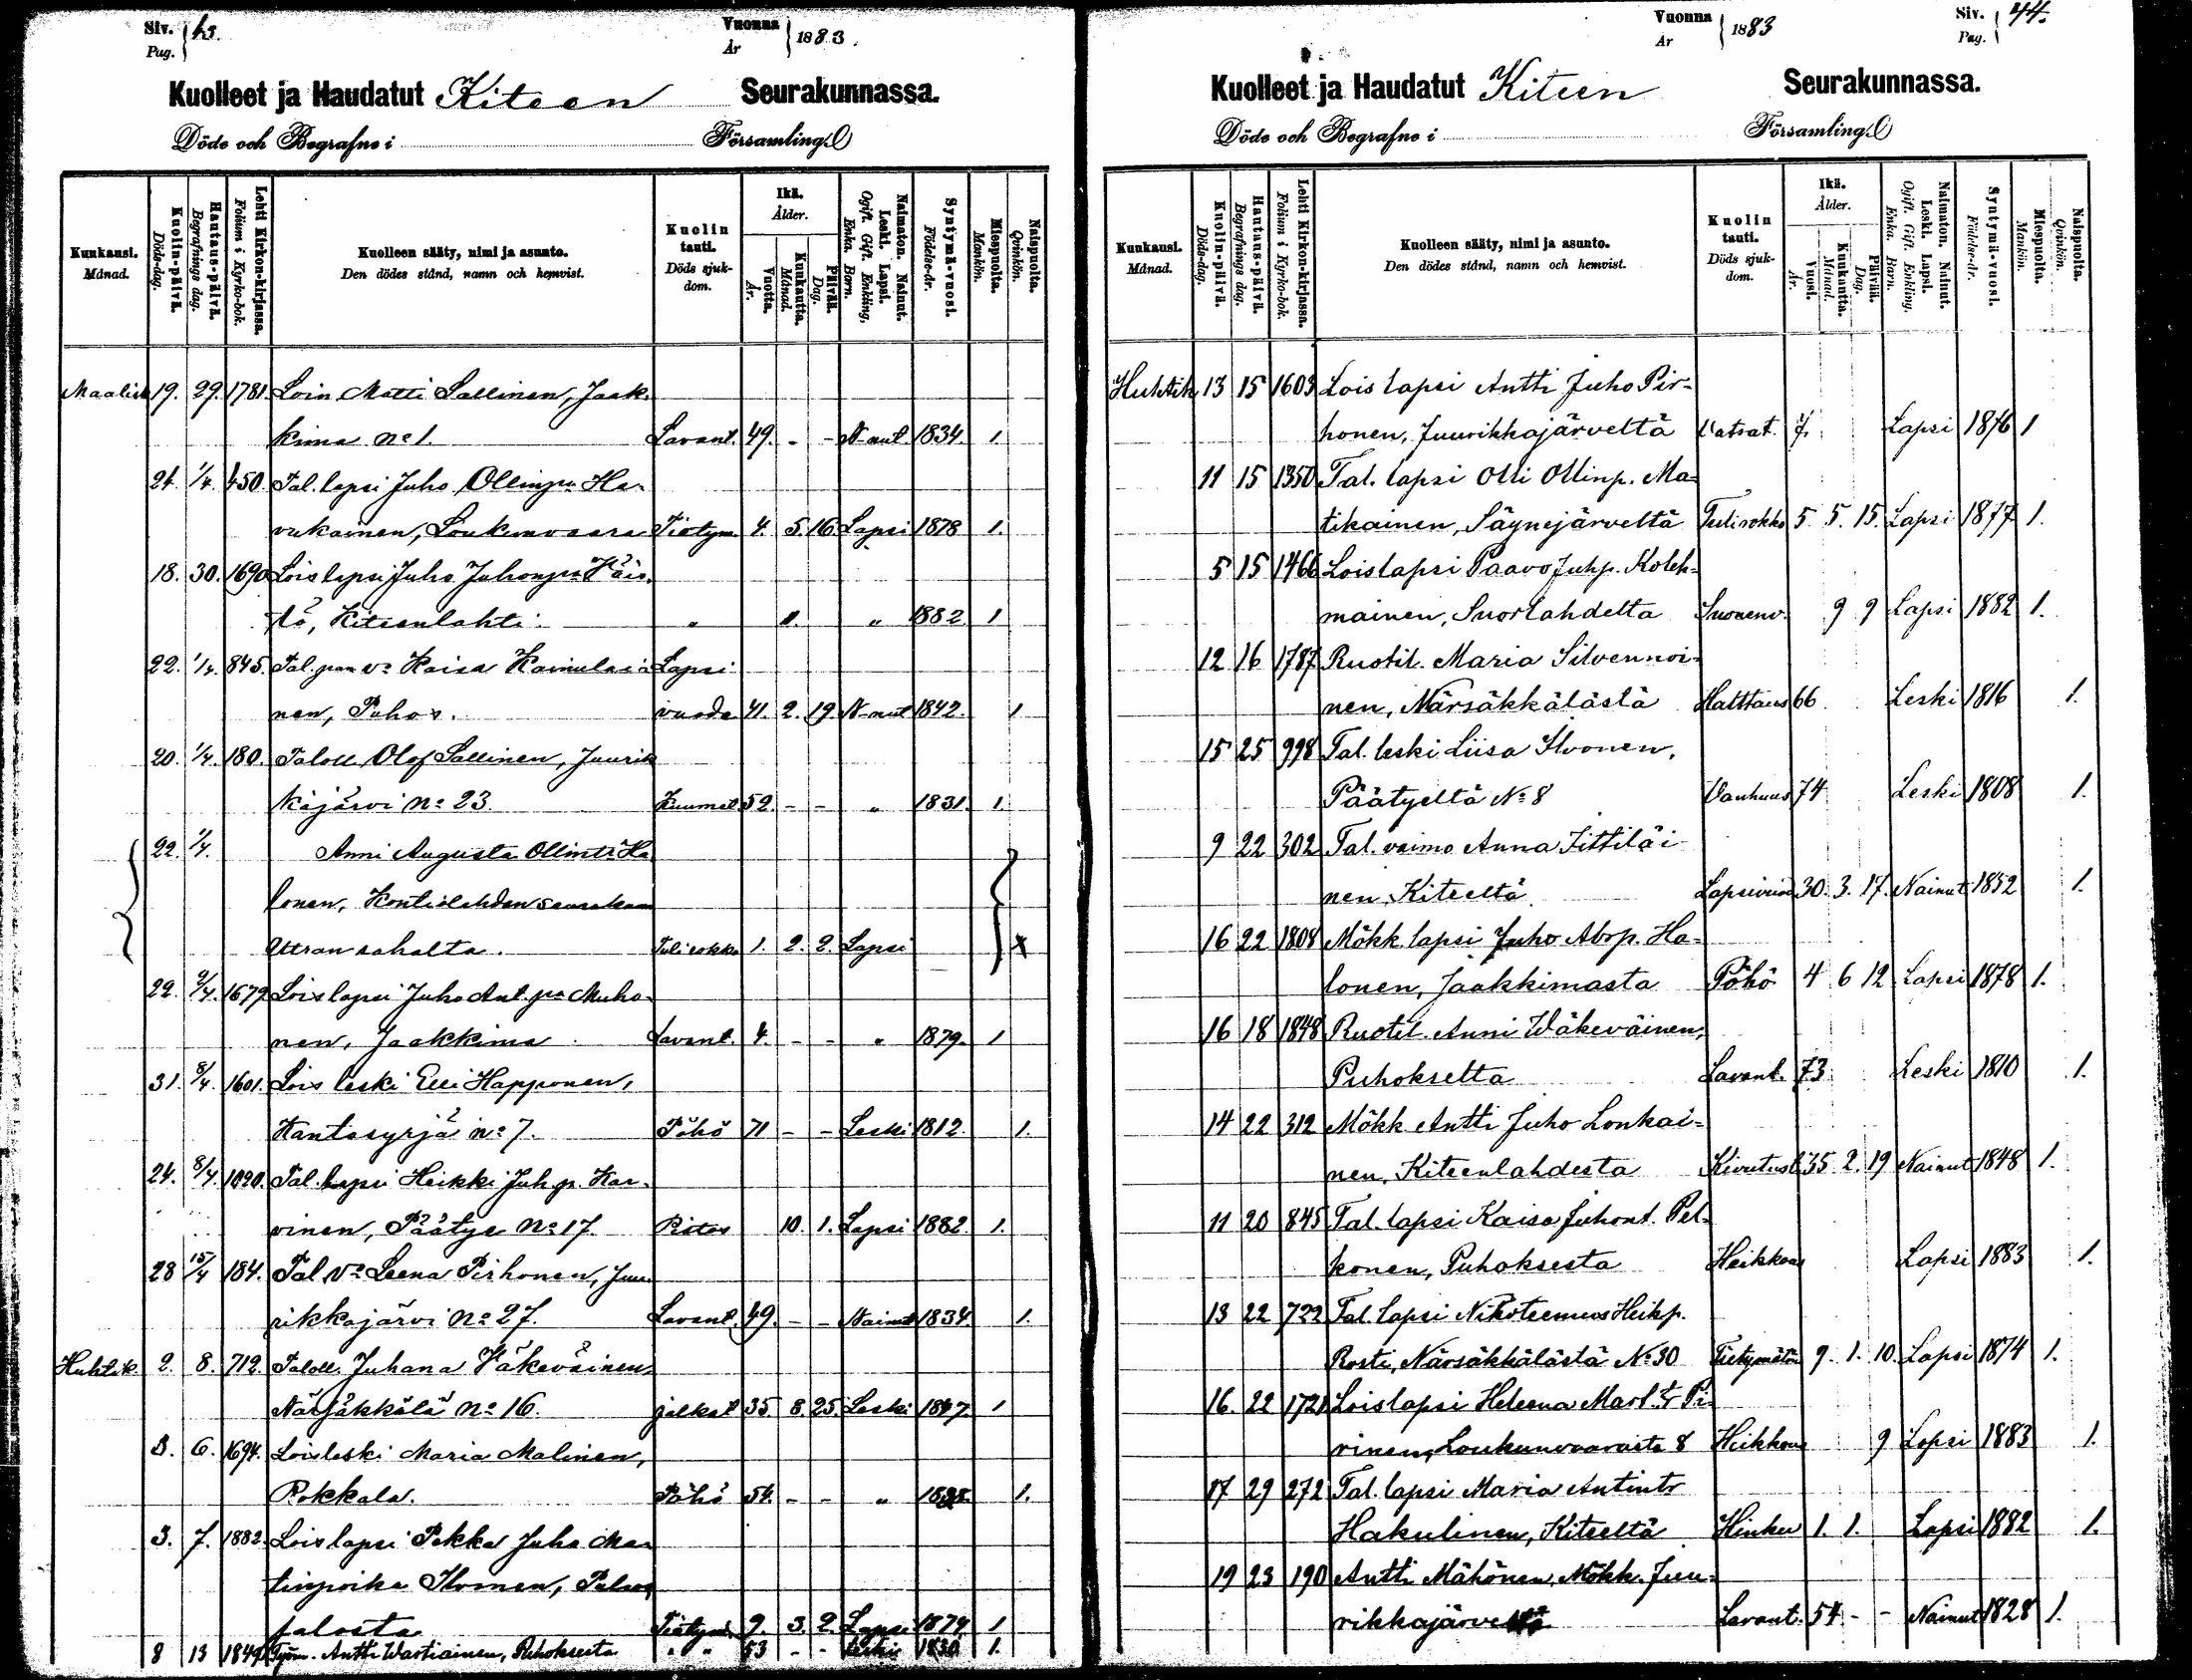 Siv. Pag. } 43.
Vuonna År } 1883.
Kuolleet ja Haudatut Kiteen Seurakunnassa.
Döde och Begrafne i Församling.
Kunkausi. Månad.
Kuolin-päivä. Döds-dag.
Hautaus-päivä. Begrafnings dag.
Lehti Kirkon-kirjassa. Folium i Kyrko-bok.
Kuolleen sääty, nimi ja asunto. Den dödes stånd, namn och hemvist.
Kuolin tauti. Döds sjukdom.
Ikä. Ålder.
Vuotta. År.
Kuukautta. Månad.
Päivää. Dag.
Naimaton. Nainut. Leski. Lapsi. Ogift. Gift. Enkling, Enka. Barn.
Syntymä-vuosi. Födelse-år.
Miespuolta. Mankön.
Naispuolta. Qvinkön.
Maalisk 19. 29. 1781. Loin. Matti Sallinen, Jaak-
kima No 1. Lavant. 49. - - N-nut 1834. 1.
24. 1/4. 450. Tal. lapsi Juho Ollinp. Ha-
vukainen, Loukunvaara Tietym. 4. 5. 16. Lapsi 1878 1.
18. 30. 1690 Lois lapsi Juho Juhonp. Häis-
tö, Kiteenlahti. " 11. " 1882. 1
22. 1/4. 845. Tal. pan vo Kaisa Kainulai- Lapsi-
nen, Puhos. vuode 41. 2. 19 N-nut 1842. 1
20. 1/4. 180. Taloll. Olof Sallinen, Juurik-
kajärvi No 23. Kuumet 52. - - " 1831. 1.
22. 1/4. Anni Augusta Ollintr Ha-
lonen, Kontiolahden seurakun
Uttran sahalta. Tulirokko 1. 2. 2. Lapsi x
22. 9/4. 1679 Lois lapsi Juho Ant. po Muho-
nen, Jaakkima Lavant. 4. - - " 1879. 1
31. 8/4. 1601. Lois leski Elli Happonen,
Kantosyrjä no 7. Pöhö 71 - - Leski 1812. 1.
24. 8/4. 1020. Tal. lapsi Heikki Juh. p. Kar-
vinen, Päätye No 17. Pistos 10. 1. Lapsi 1882. 1.
28 15/4 184. Tal. vo Leena Pirhonen, Juu-
rikkajärvi No 27. Lavant. 49. - - Nainut 1834. 1.
Huhtik. 2. 8. 712. Taloll. Juhana Väkeväinen,
Närsäkkälä No 16. jalkat 35. 8. 25. Leski 1847. 1
3. 6. 1694. Loisleski Maria Malinen,
Rokkala. Pöhö 54. - - " 1. 
3. 7. 1882. Lois lapsi Pekka Juho Mar-
tinpoika Ilvonen, Palo-
jalosta Tietym. 9. 3. 2. Lapsi 1874. 1
8 13 1849 Työm. Antti Wartiainen, Puhoksesta " " 53 - - Leski 1830 1.
Vuonna År } 1883
Siv. Pag. } 44.
Kuolleet ja Haudatut Kiteen Seurakunnassa.
Döde och Begrafne i Församling.
Kunkausi. Månad.
Kuolin-päivä. Döds-dag.
Hautaus-päivä. Begrafnings dag.
Lehti Kirkon-kirjassa. Folium i Kyrko-bok.
Kuolleen sääty, nimi ja asunto. Den dödes stånd, namn och hemvist.
Kuolin tauti. Döds sjukdom.
Ikä. Ålder.
Vuosi. År.
Kuukautta. Månad.
Päivää. Dag.
Naimaton. Nainut. Leski. Lapsi. Ogift. Gift. Enkling. Enka. Barn.
Syntymä-vuosi. Födelse-år.
Miespuolta. Mankön.
Naispuolta. Qvinkön.
Huhtik 13 15 1603 Lois lapsi Antti Juho Pir-
honen, Juurikkajärveltä Vatsat. 7. Lapsi 1876 1
11 15 1350 Tal. lapsi Olli Ollinp. Ma-
tikainen, Säynejärveltä Tulirokko 5. 5. 15. Lapsi 1877 1.
5 15 1466 Loislapsi Paavo Juhp. Koleh-
mainen, Suorlahdelta Suonenv. 9 9 Lapsi 1882 1.
12 16 1787 Ruotil. Maria Silvennoi-
nen, Närsäkkälästä Halttaus 66 Leski 1816 1.
15 25 998 Tal. leski Liisa Ilvonen,
Päätyeltä No 8 Vanhuus 74 Leski 1808 1.
9 22 302 Tal. vaimo Anna Tittiläi-
nen, Kiteeltä. Lapsivuode 30. 3. 17. Nainut 1852 1.
16 22 1808 Mökk. lapsi Juho Abrp. Ha-
lonen, Jaakkimasta Pöhö 4 6 12 Lapsi 1878 1.
16 18 1848 Ruotil. Anni Wäkeväinen,
Puhokselta Lavant. 73 Leski 1810 1.
14 22 312 Mökk. Antti Juho Lonkai-
nen, Kiteenlahdesta Kivutusti 35 2. 19 Nainut 1848 1.
11 20 845 Tal. lapsi Kaisa Juhont. Pel-
konen, Puhoksesta Heikkous Lapsi 1883 1.
13 22 722 Tal. lapsi Nikoteemus Heikp.
Rosti, Närsäkkälästä No 30 Tietymätön 9. 1. 10. Lapsi 1874 1.
16. 22 1721 Loislapsi Heleena Mart. tr Pi-
rinen, Loukunvaarasta 8 Heikkous 9 Lapsi 1883 1.
17 29 272 Tal. lapsi Maria Antintr
Hakulinen, Kiteeltä Hinku 1. 1. Lapsi 1882 1.
19 23 190 Antti Mähönen, Mökk. Juu-
rikkajärveltä Lavant. 54 - - Nainut 1828 1.